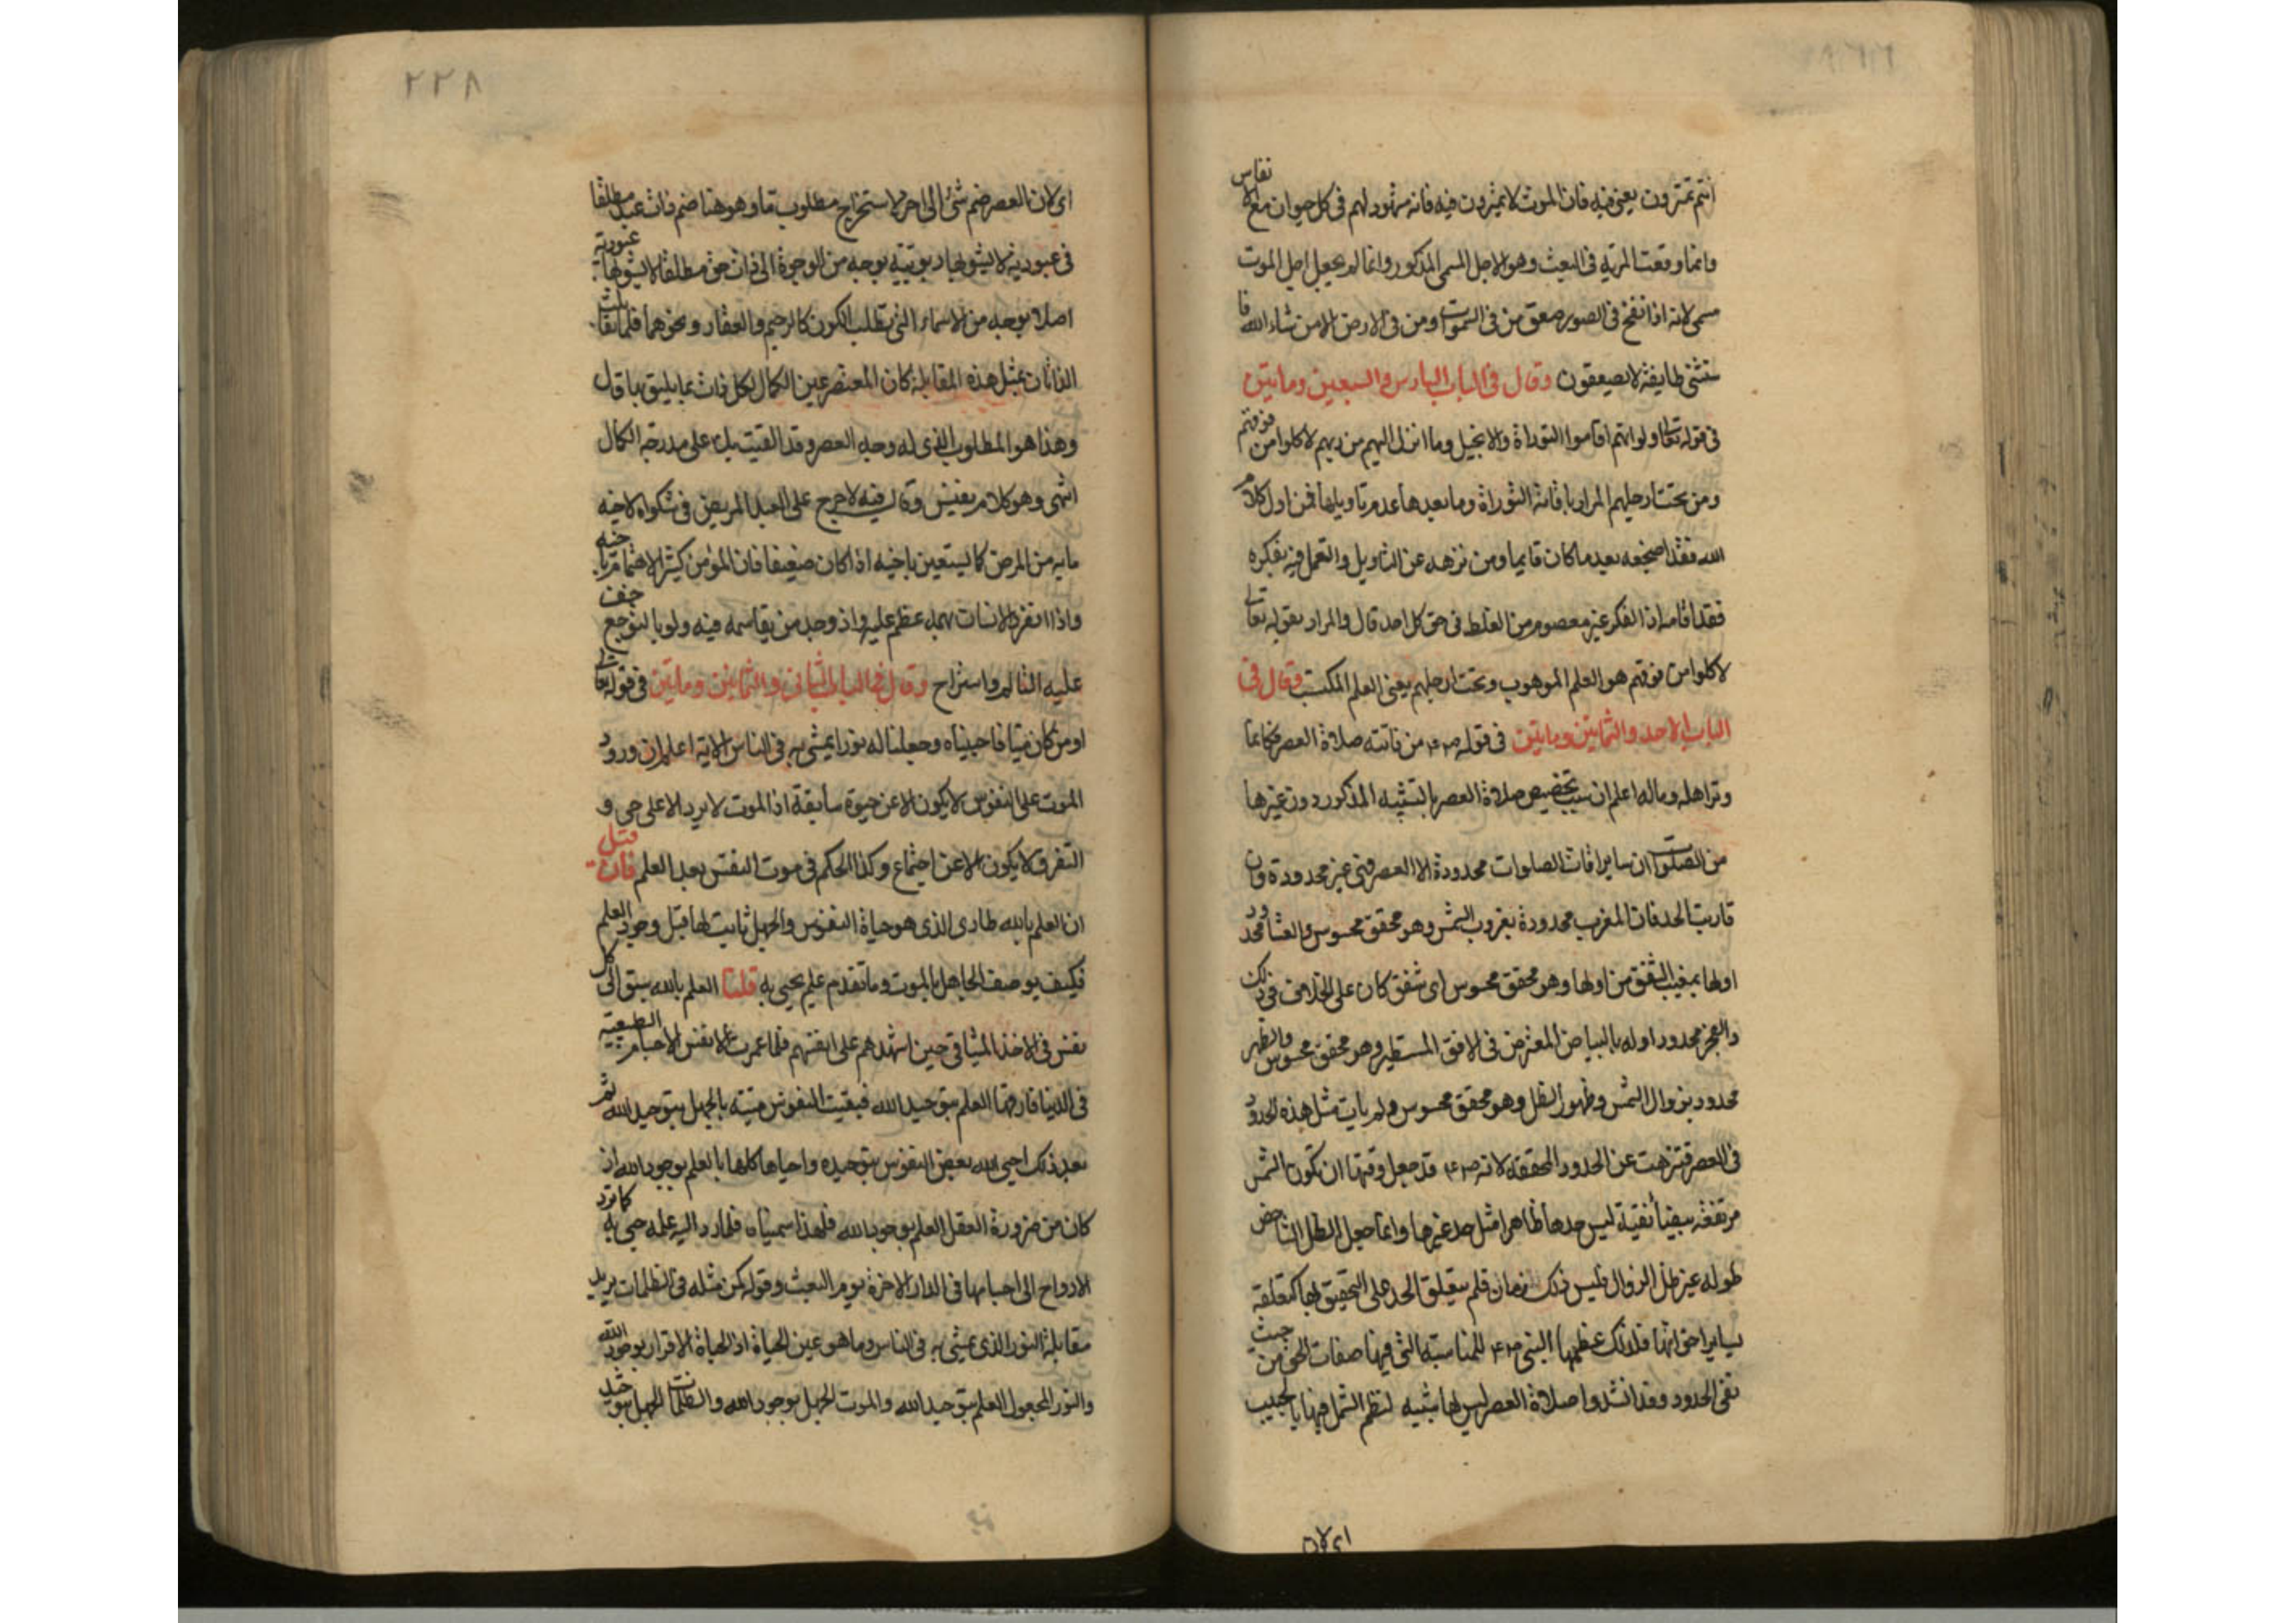 انتم تمترون يعني فيه فان الموت لا تميترون فيه فانه مشهود لهم في كل حيوان مع الانفاس
وانما وقعت المرية في البعث وهو الاجل المسمى المذكور وانما لم يجعل اجل الموت
مسمى لانه اذا نفخ في الصور صعق من في السموات ومن في الارض الا من شاء الله فا
ستثنى طايفة لا يصعقون وقال في الباب السادس والسبعين وماتين
في قوله تعالى ولو انهم اقاموا التوراة والانجيل وما انزل اليهم من ربهم لاكلوا من فوقهم
ومن تحت ارجلهم المراد باقامة التوراة وما بعدها عدم تاويلها فمن اول كلام
الله فقد اضجعه بعد ما كان قايما ومن نزهه عن التاويل والتعمل فيه بفكره
فقد اقامه اذ الفكر غير معصوم من الغلط في حق كل احد قال والمراد بقوله تعالى
لاكلوا من فوقهم هو العلم الموهوب وتحت ارجلهم يعني العلم المكتسب وقال في
الباب الاحد والثمانين وماتين في قوله صلعم من فاتته صلاة العصر فكانما
وتر اهله وماله اعلم ان سبب تخصيص صلاة العصر بالتشبيه المذكور دون غيرها
من الصلوات ان ساير اوقات الصلوات محدودة الا العصر فهي غير محدودة وان
قاربت الحد فان المغرب محدودة بغروب الشمس وهو محقق محسوس والعشا محدود
اولها بمغيب الشفق من اولها وهو محقق محسوس اي شفق كان على الخلاف في ذلك
والفجر محدود اوله بالبياض المعترض في الافق المستطير وهو محقق محسوس والظهر
محدود بزوال الشمس وظهور الظل وهو محقق محسوس ولم يات مثل هذه الحدود
في العصر فتنزهت عن الحدود المحققة لانه صلعم قد جعل وقتها ان تكون الشمس
مرتفعة بيضا نقية ليس حدها ظاهرا مثل حد غيرها وانما جعل الظل الشاخص
طوله غير ظل الزوال وليس ذلك زمان فلم يتعلق الحد على التحقيق لها كتعلقه
بساير اخواتها فلذلك عظمها النبي صلعم للمناسبة التي فيها صفات الحق من حيث
نفي الحدود وقد انشدوا صلاة العصر ليس لها شبيه لنظم الشمل فيها بالحبيب
اي لان
٢٢٨
اي لان العصر ضم شئ الى اخر لاستخراج مطلوب ما وهو هنا ضم ذات عبد مطلقا
في عبوديته لا يشوبها ربوبية بوجه من الوجوه الى ذات حق مطلقا لا يشوبها عبودية
اصلا بوجه من الاسماء التي تطلب الكون كالرحيم والغفار ونحوهما فلما تقابلت
الذاتان بمثل هذه المقابلة كان المعتصر عين الكمال لكل ذات بما يليق بها قال
وهذا هو المطلوب الذي له وجد العصر وقد القيت بك على مدرجة الكمال
انتهى وهو كلام نفيس وقال فيه لا حرج على العبد المريض في شكواه لاخيه
ما به من المرض كما يستعين باخيه اذا كان ضعيفا فان المؤمن كثير الاهتمام باخيه
واذا انفرد الانسان بهمه عظم عليه واذ وجد من يقاسمه فيه ولو بالتوجع خف
عليه التالم واستراح وقال في الباب الثاني والثمانين وماتين في قوله تعالى
اومن كان ميتا فاحييناه وجعلنا له نورا يمشي به في الناس الاية اعلم ان ورود
الموت على النفوس لا يكون الا عن حيوة سابقة اذ الموت لا يرد الا على حي و
التفرق لا يكون الا عن اجتماع وكذا الحكم في موت النفس بعد العلم فان قيل
ان العلم بالله طارئ الذي هو حياة النفوس والجهل ثابت لها قبل وجود العلم
فكيف يوصف الجاهل بالموت وما تقدم علم يحيى به قلنا العلم بالله سبق الى كل
نفس في الاخذ الميثاقي حين اشهدهم على انفسهم فلما عمرت الانفس الاجسام الطبيعية
في الدنيا فارقها العلم بتوحيد الله فبقيت النفوس ميتة بالجهل بتوحيد الله ثم
بعد ذلك احيى الله بعض النفوس بتوحيده واحياها كلها بالعلم بوجود الله اذ
كان من ضرورة العقل العلم بوجود الله فلهذا سميناه فلما رد اليه علمه حيي به كما ترد
الارواح الى اجسامها في الدار الاخرة يوم البعث وقوله كمن مثله في الظلمات يريد
مقابلة النور الذي يمشي به في الناس وما هو عين الحياة اذ الحياة الاقرار بوجود الله
والنور المجعول العلم بتوحيد الله والموت الجهل بوجود الله والظلمات الجهل بتوحيد